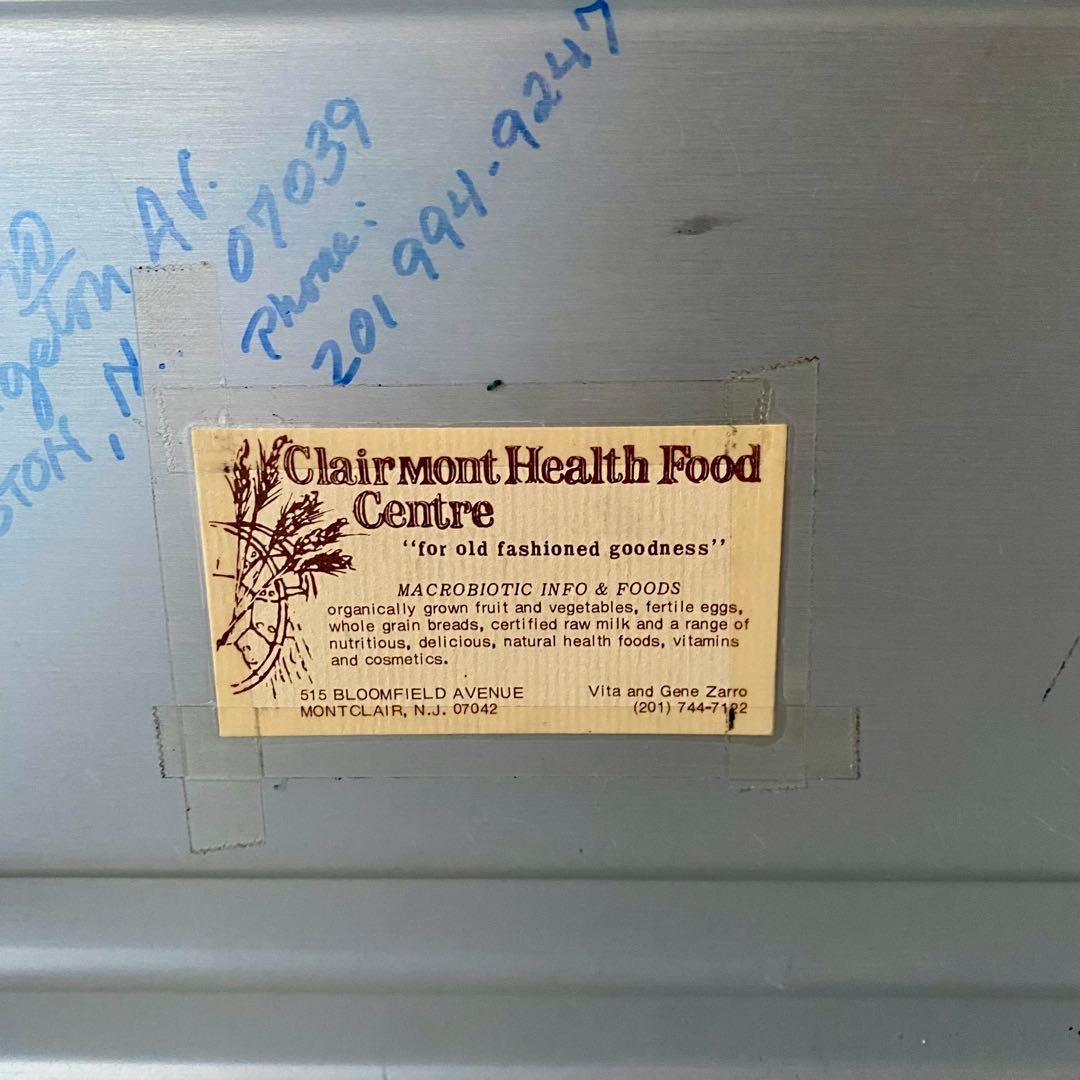 Av.
07039
Phone:
201 994-9247
Clairmont Health Food
Centre
“for old fashioned goodness”
MACROBIOTIC INFO & FOODS
organically grown fruit and vegetables, fertile eggs,
whole grain breads, certified raw milk and a range of
nutritious, delicious, natural health foods, vitamins
and cosmetics.
515 BLOOMFIELD AVENUE
MONTCLAIR, N.J. 07042
Vita and Gene Zarro
(201) 744-7122